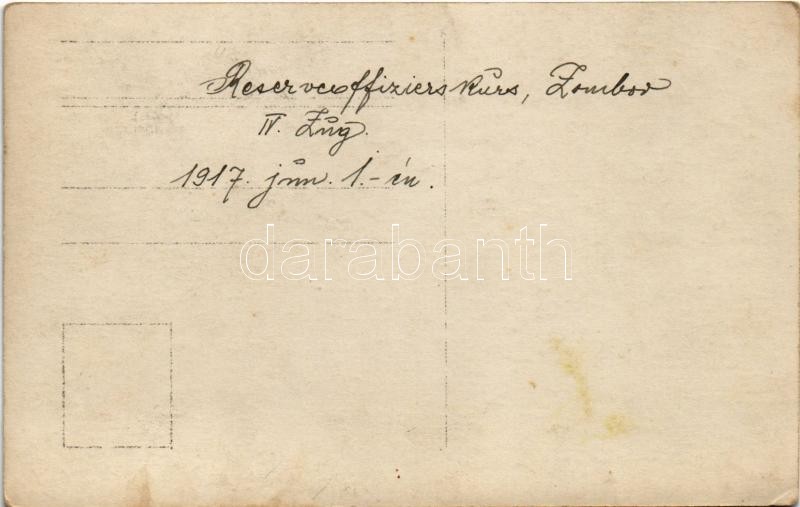 Reserveoffizierskurs, Zombor
IV. Zug.
1917. jun. 1.-én.
darabanth